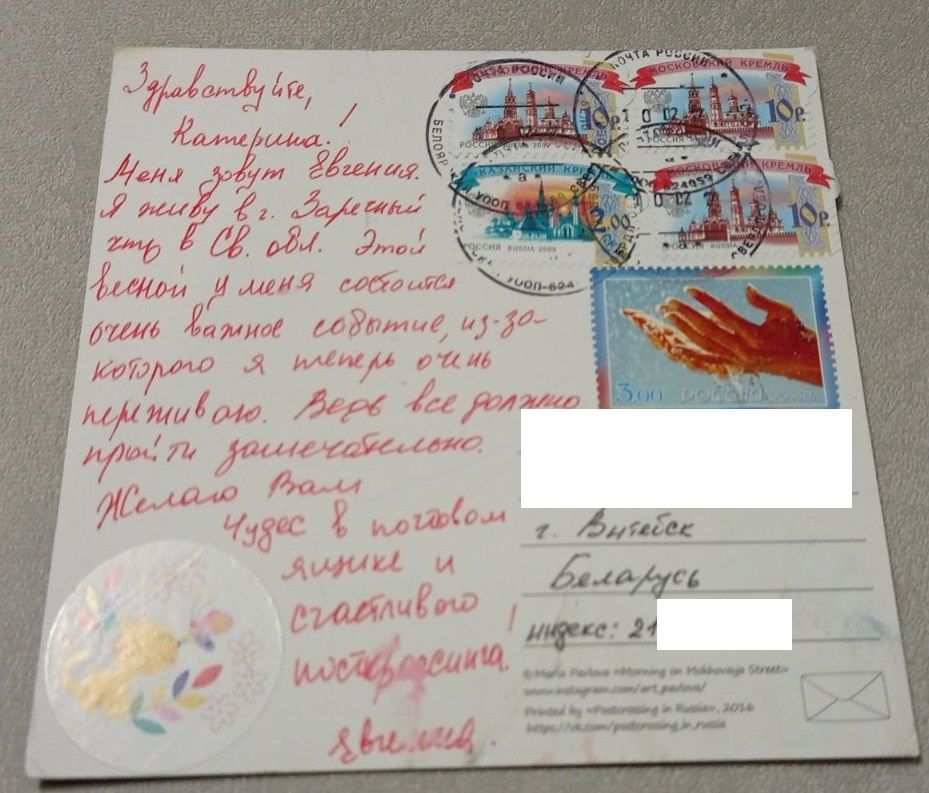 Здравствуйте,
Катерина!
Меня зовут Евгения.
Я живу в г. Заречный
что в Св. обл. Этой
весной у меня состоится
очень важное событие, из-за
которого я теперь очень
переживаю. Ведь все должно
пройти замечательно.
Желаю Вам
Чудес в почтовом
ящике и
счастливого
посткроссинга!
Евгения.
ПОЧТА РОССИИ
МОСКОВСКИЙ КРЕМЛЬ
10р.
РОССИЯ RUSSIA 2009
ПОЧТА РОССИИ
МОСКОВСКИЙ КРЕМЛЬ
10р.
КАЗАНСКИЙ КРЕМЛЬ
2.00
РОССИЯ RUSSIA 2009
УООП-624
МОСКОВСКИЙ КРЕМЛЬ
10р.
РОССИЯ RUSSIA
624059
3.00 РОССИЯ
г. Витебск
Беларусь
индекс: 21
©Maria Pavlova «Morning on Mokhovaya Street»
www.instagram.com/art.pavlova/
Printed by «Postcrossing in Russia», 2016
https://vk.com/postcrossing.in.russia